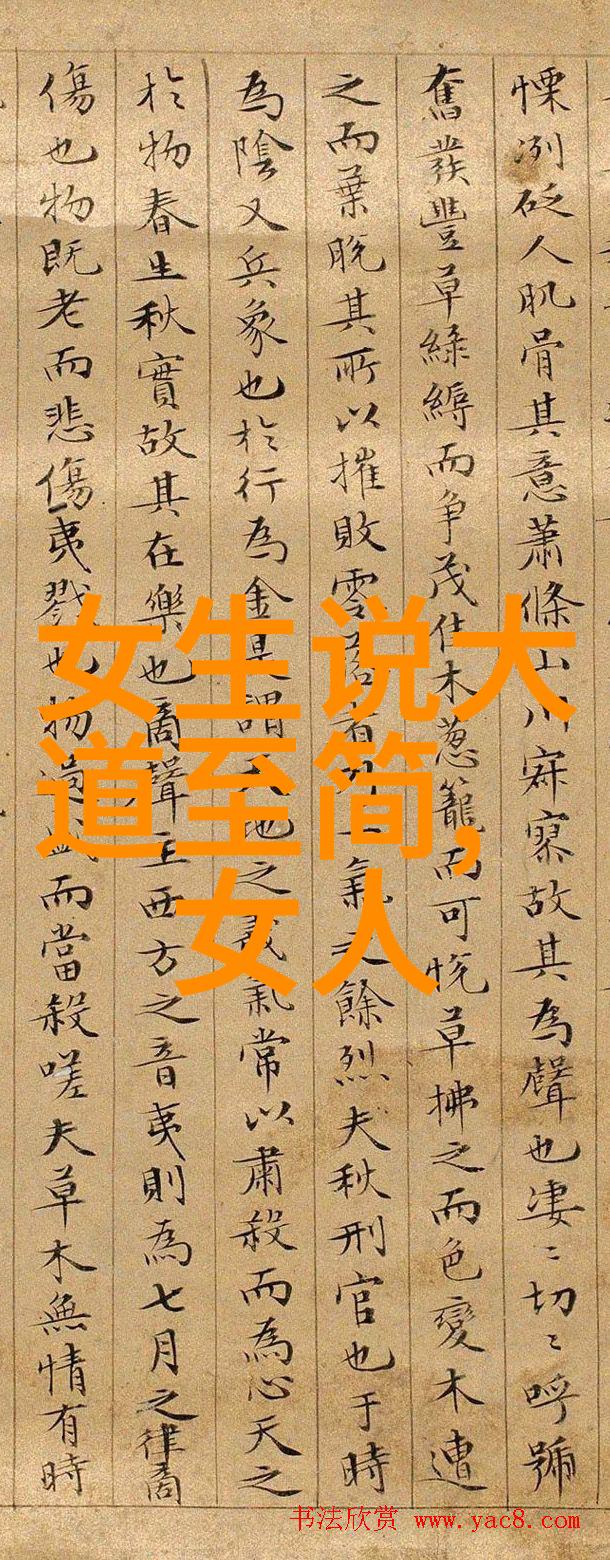 慄冽砭人肌骨其意蕭條山川寂寥故其為聲也凄〻切〻呼號
奮發豐草綠縟而争茂佳木葱籠而可悅草拂之而色變木遭
之而葉脫其所以摧敗零落者乃一氣之餘烈夫秋刑官也于時
為陰又兵象也於行為金是謂天地之義氣常以肅殺而為心天之
於物春生秋實故其在樂也商聲主西方之音夷則為七月之律商
傷也物既老而悲傷夷戮也物過盛而當殺嗟夫草木無情有時
女生说大
道至简,
女人
书法欣赏 www.yac8.com